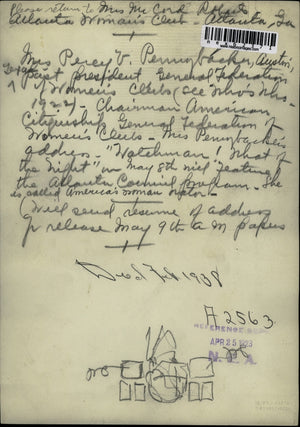 Please return to Mrs Mc Cord Roberts
Atlanta Woman's Club - Atlanta, Ga
Mrs Percy V. Pennybacker, Austin,
Texas
Past President General Federation
of Women's Clubs (see Who's Who -
1922) - Chairman American
Citizenship General Federation of
Women's Clubs - Mrs Pennybacker's
address - "Watchman! What of
the Night" on May 8th will feature
the Atlanta Council Program - She
is called America's woman orator -
Will send resume of address
for release May 9th a m papers
Died Feb 1938
A 2563
REFERENCE DEPT.
APR 25 1923
N. E. A.